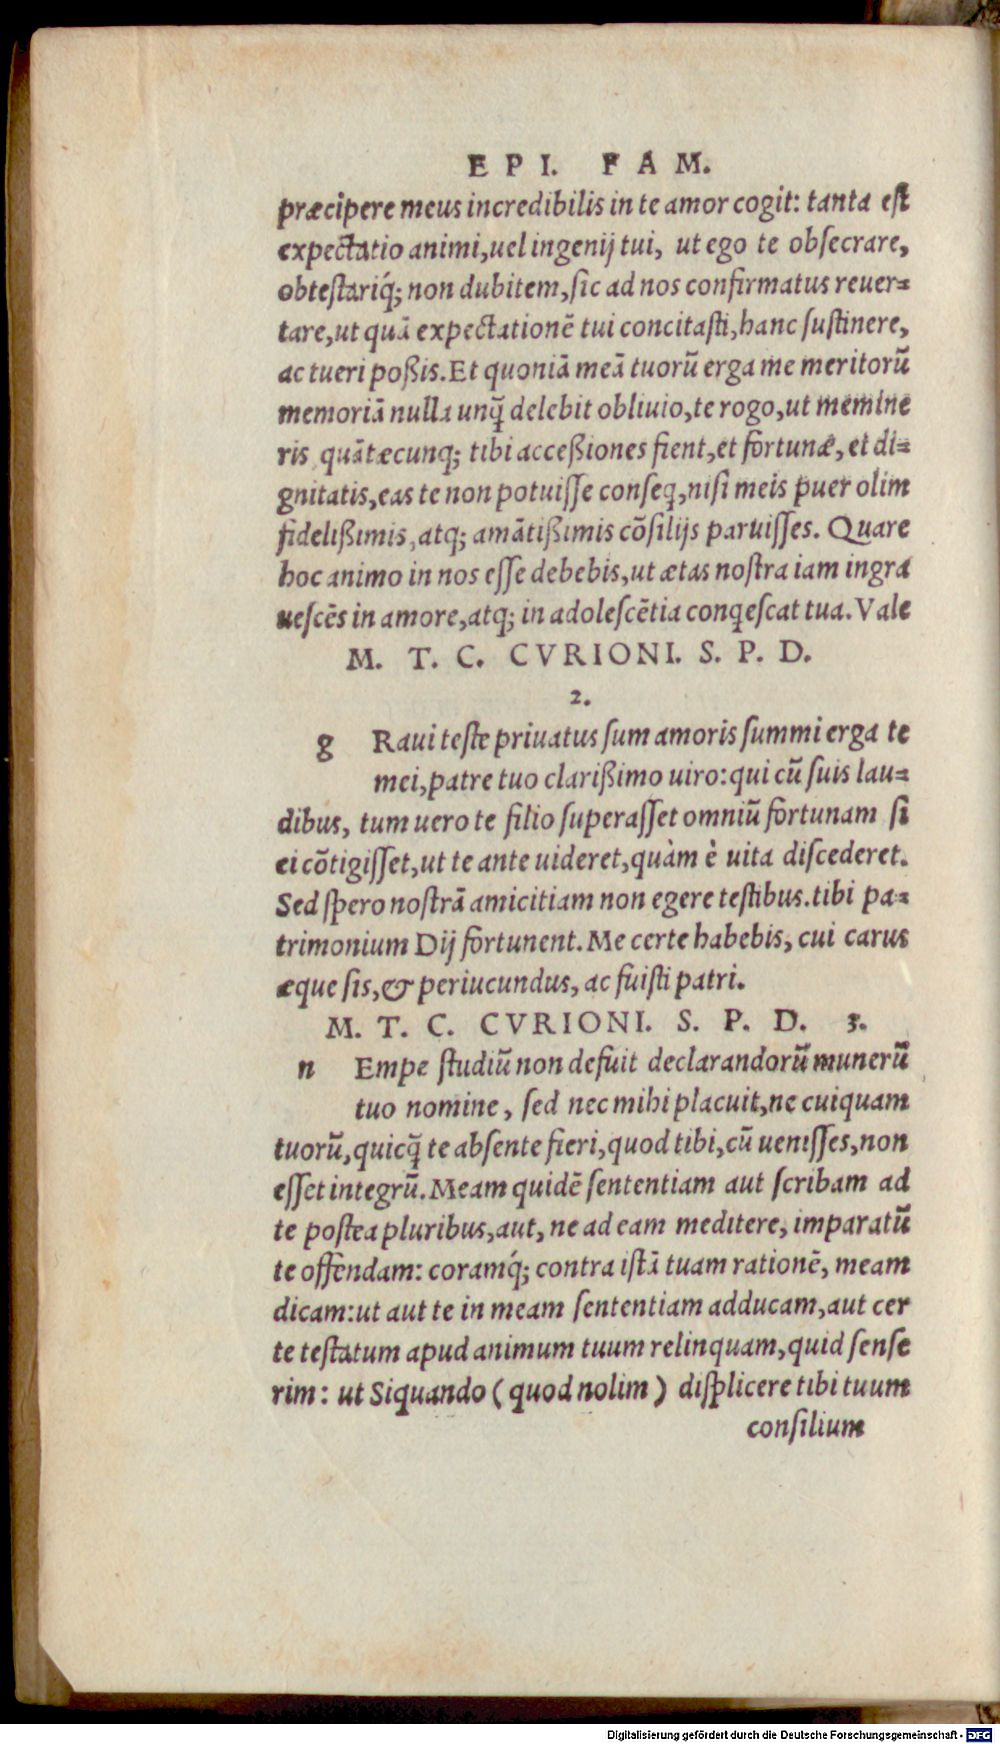 EPI. FAM.
præcipere meus incredibilis in te amor cogit: tanta est
expectatio animi, uel ingenij tui, ut ego te obsecrare,
obtestariq́; non dubitem, sic ad nos confirmatus reuer=
tare, ut quā expectationē tui concitasti, hanc sustinere,
ac tueri poßis. Et quoniā meā tuorū erga me meritorū
memoriā nulla unq̄ delebit obliuio, te rogo, ut memine
ris quātæcunq; tibi acceßiones fient, et fortunæ, et di=
gnitatis, eas te non potuisse conseq, nisi meis puer olim
fidelißimis, atq; amātißimis cōsilijs paruisses. Quare
hoc animo in nos esse debebis, ut ætas nostra iam ingra
uescēs in amore, atq; in adolescētia conqescat tua. Vale
M. T. C. CVRIONI. S. P. D.
2.
g Raui teste priuatus sum amoris summi erga te
mei, patre tuo clarißimo uiro: qui cū suis lau=
dibus, tum uero te filio superasset omniū fortunam si
ei cōtigisset, ut te ante uideret, quàm è uita discederet.
Sed spero nostrā amicitiam non egere testibus. tibi pa=
trimonium Dij fortunent. Me certe habebis, cui carus
æque sis, & periucundus, ac fuisti patri.
M. T. C. CVRIONI. S. P. D. 3.
n Empe studiū non defuit declarandorū munerū
tuo nomine, sed nec mihi placuit, ne cuiquam
tuorū, quicq̄ te absente fieri, quod tibi, cū uenisses, non
esset integrū. Meam quidē sententiam aut scribam ad
te postea pluribus, aut, ne ad eam meditere, imparatū
te offendam: coramq́; contra istā tuam rationē, meam
dicam: ut aut te in meam sententiam adducam, aut cer
te testatum apud animum tuum relinquam, quid sense
rim: ut Siquando (quod nolim) displicere tibi tuum
consilium
Digitalisierung gefördert durch die Deutsche Forschungsgemeinschaft - DFG